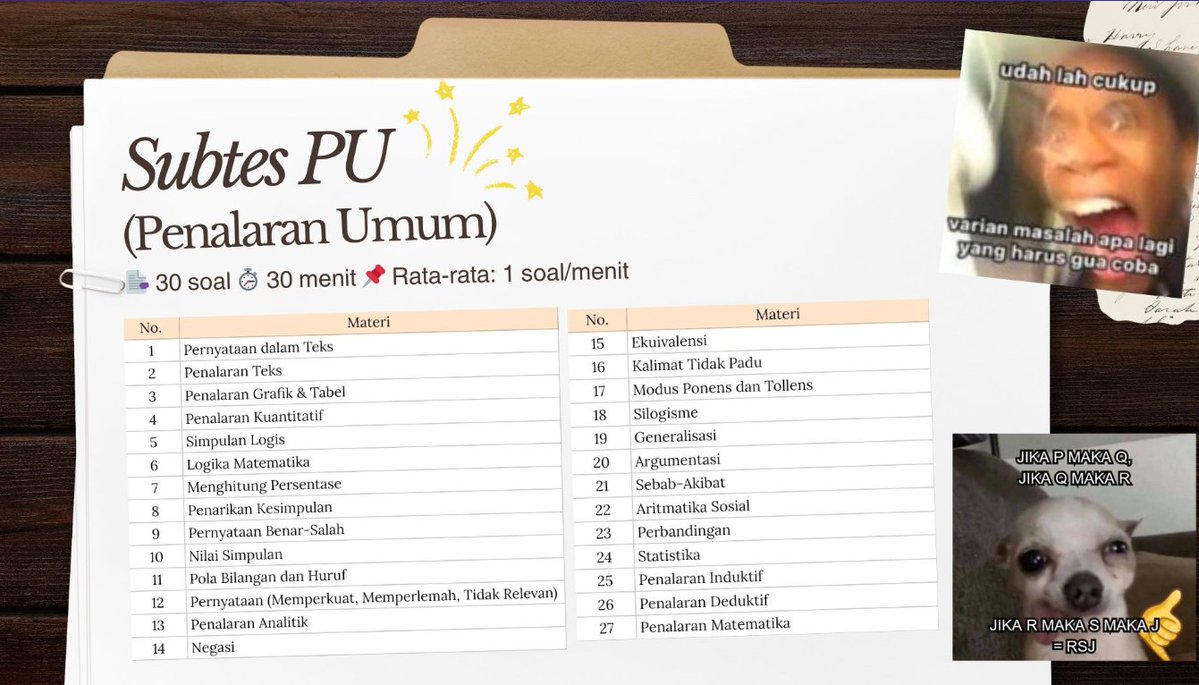 Subtes PU
(Penalaran Umum)
30 soal 30 menit Rata-rata: 1 soal/menit
No. Materi
1 Pernyataan dalam Teks
2 Penalaran Teks
3 Penalaran Grafik & Tabel
4 Penalaran Kuantitatif
5 Simpulan Logis
6 Logika Matematika
7 Menghitung Persentase
8 Penarikan Kesimpulan
9 Pernyataan Benar-Salah
10 Nilai Simpulan
11 Pola Bilangan dan Huruf
12 Pernyataan (Memperkuat, Memperlemah, Tidak Relevan)
13 Penalaran Analitik
14 Negasi
No. Materi
15 Ekuivalensi
16 Kalimat Tidak Padu
17 Modus Ponens dan Tollens
18 Silogisme
19 Generalisasi
20 Argumentasi
21 Sebab-Akibat
22 Aritmatika Sosial
23 Perbandingan
24 Statistika
25 Penalaran Induktif
26 Penalaran Deduktif
27 Penalaran Matematika
udah lah cukup
varian masalah apa lagi
yang harus gua coba
JIKA P MAKA Q,
JIKA Q MAKA R
JIKA R MAKA S MAKA J
= RSJ